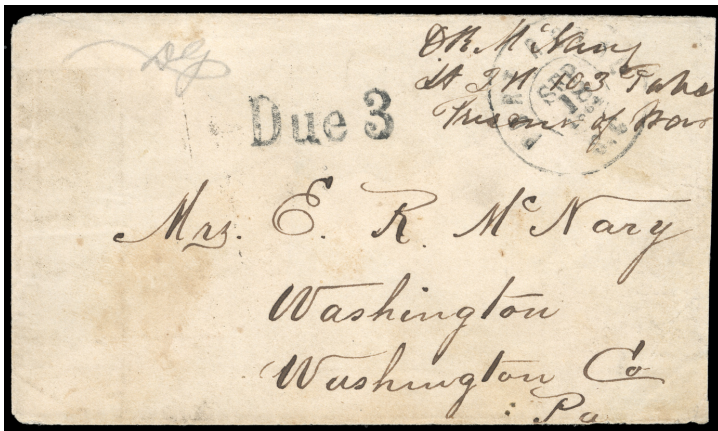 O R McNary
Lt 3 H 103
Prisoner of War
Due 3
Mrs. E. R. McNary
Washington
Washington Co
Pa